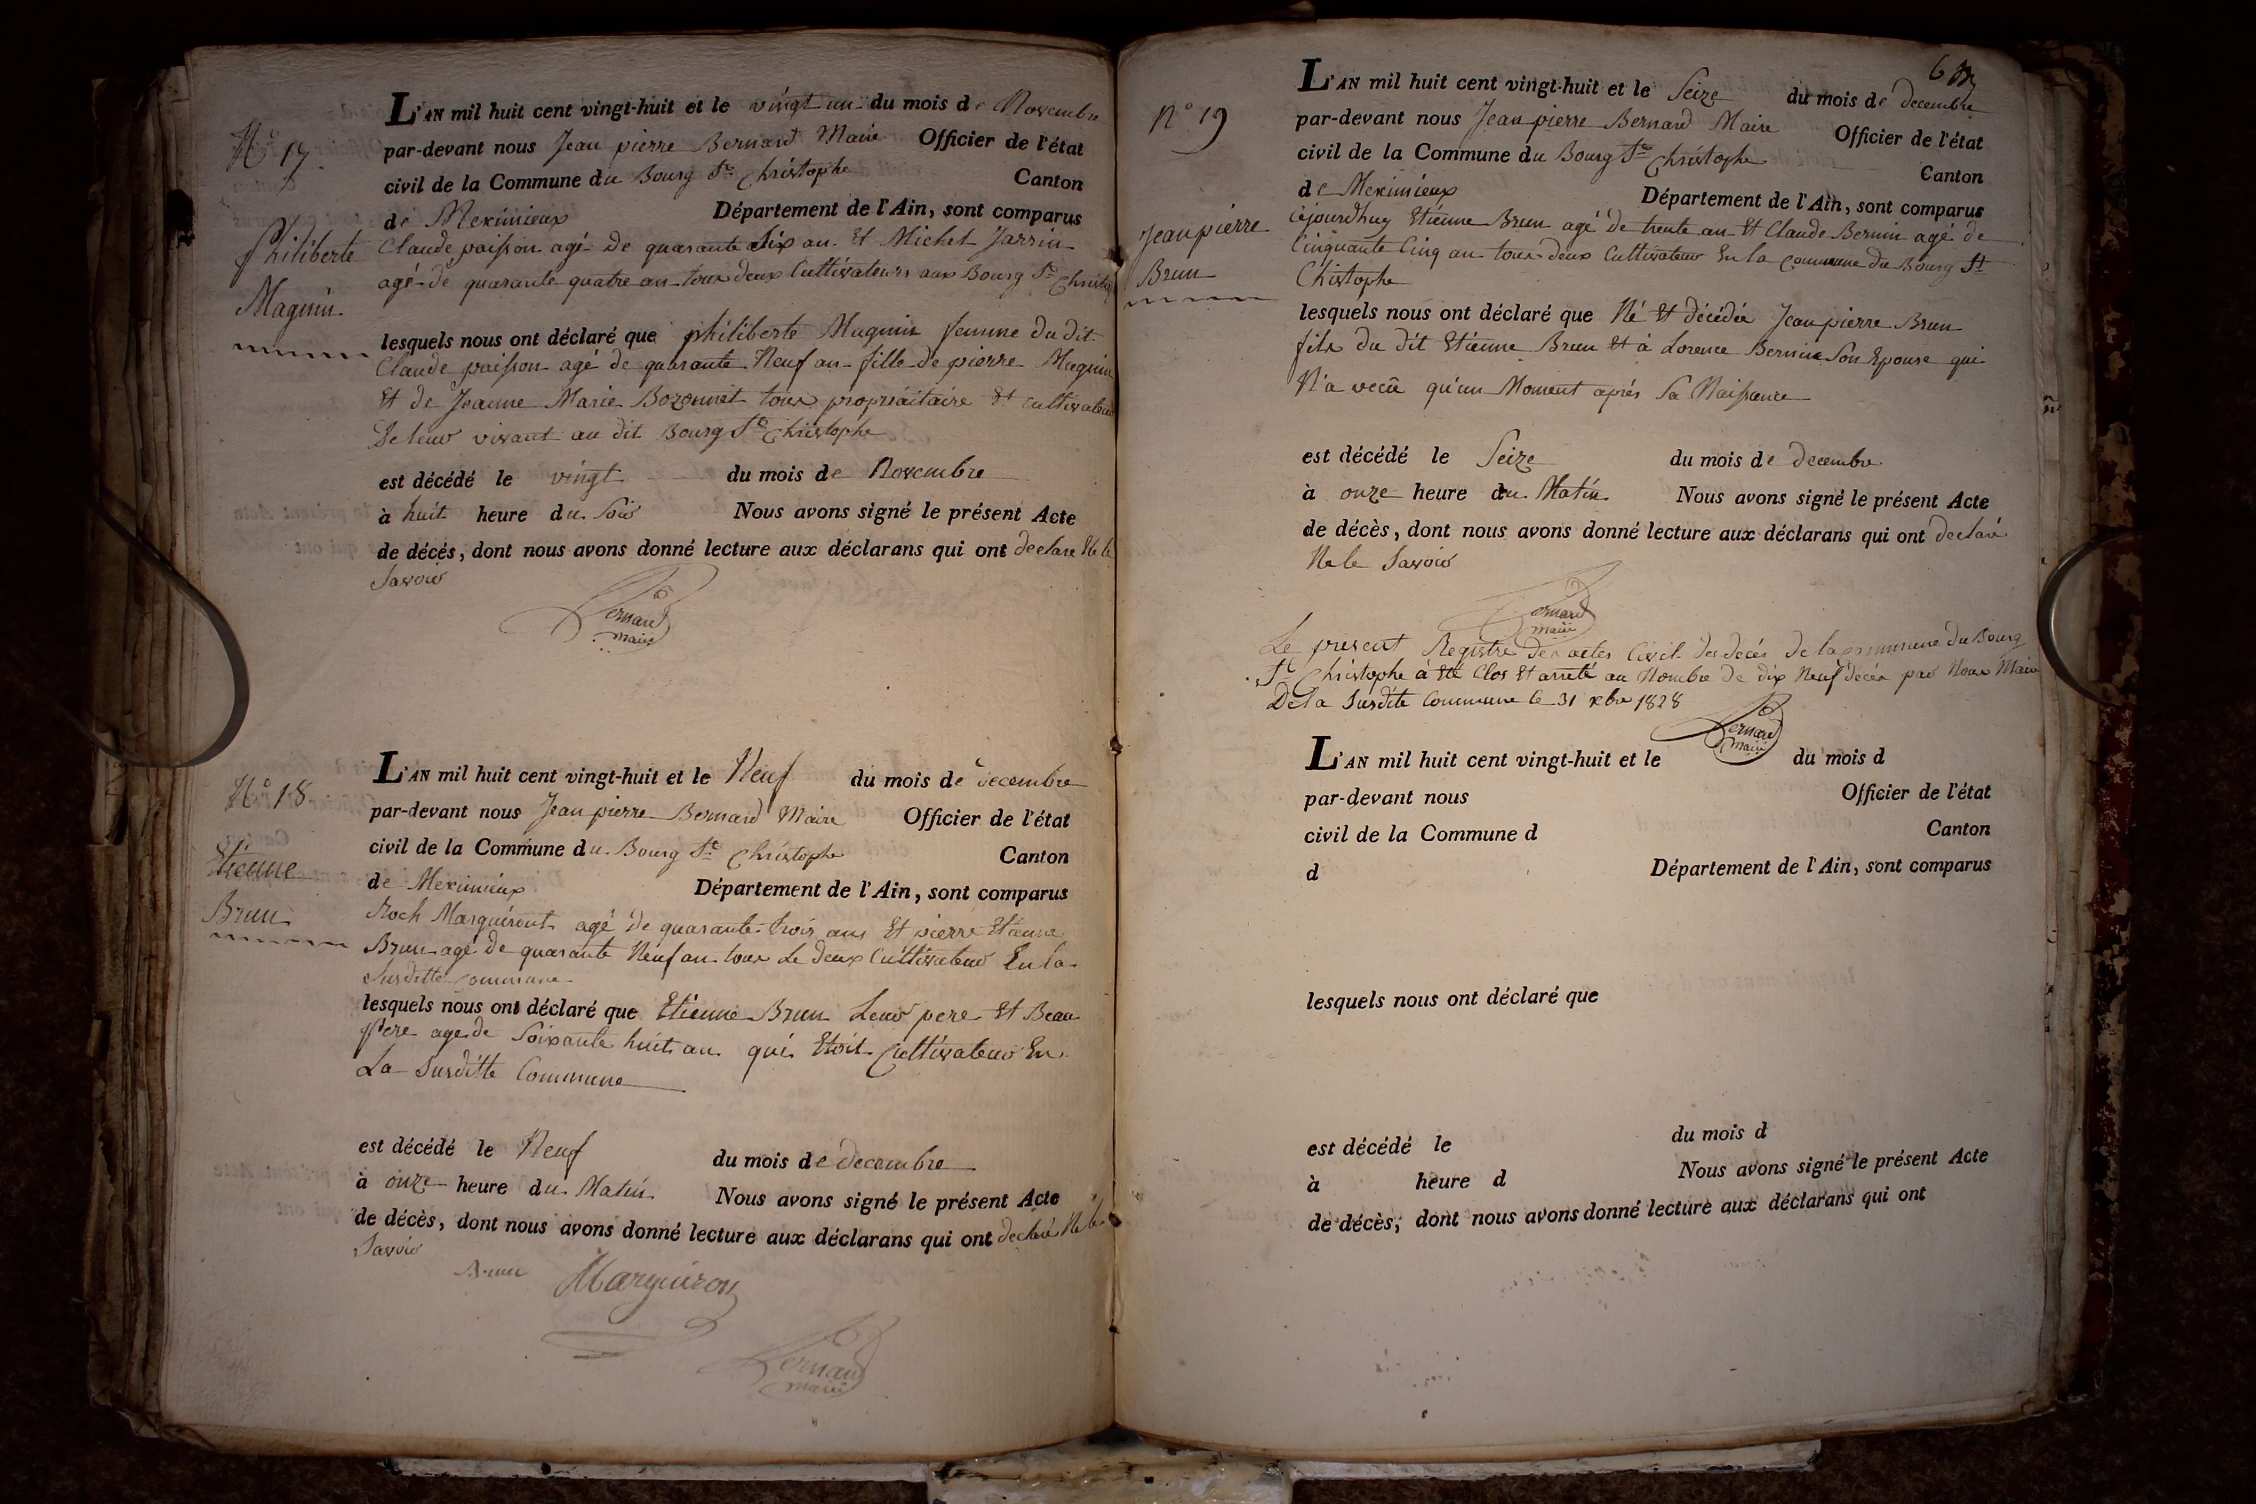 N° 17
Philiberte
Magnin
L'AN mil huit cent vingt-huit et le vingt un du mois de Novembre
par-devant nous Jean pierre Bernard Maire Officier de l'état
civil de la Commune du Bourg St Christophe Canton
de Meximieux Département de l'Ain, sont comparus
Claude poisson agé de quarante dix an Et Michel Jarrin
agé de quarante quatre an tous deux Cultivateurs aux Bourg St Christophe
lesquels nous ont déclaré que philiberte Magnin femme du dit
Claude poisson agé de quarante Neuf an fille de pierre Magnin
Et de Jeanne Marie Bozonnet tous propriaitaire Et cultivateur
De leur vivant au dit Bourg St Christophe
est décédé le vingt du mois de Novembre
à huit heure du Soir Nous avons signé le présent Acte
de décés, dont nous avons donné lecture aux déclarans qui ont declaré Ne le
Savoir
Bernard
maire
N° 18
Etienne
Brun
L'AN mil huit cent vingt-huit et le Neuf du mois de decembre
par-devant nous Jean pierre Bernard Maire Officier de l'état
civil de la Commune du Bourg St Christophe Canton
de Meximieux Département de l'Ain, sont comparus
Roch Marguiront agé de quarante trois ans Et pierre Etienne
Brun agé de quarante Neuf an tous Le deux Cultivateur En la
Susditte commune
lesquels nous ont déclaré que Etienne Brun Leur pere Et Beau
pere age de Soixante huit an qui Etoit Cultivateur En
La Susditte Commune
est décédé le Neuf du mois de decembre
à onze heure du Matin Nous avons signé le présent Acte
de décès, dont nous avons donné lecture aux déclarans qui ont declaré Ne le
Savoir
Brun Marguiron
Bernard
maire
N° 19
Jean pierre
Brun
L'AN mil huit cent vingt-huit et le Seize du mois de decembre
par-devant nous Jean pierre Bernard Maire Officier de l'état
civil de la Commune du Bourg St Christophe Canton
de Meximieux Département de l'Ain, sont comparus
cejourdhuy Etienne Brun agé de trente an Et Claude Bernin agé de
Cinquante Cinq an tous deux Cultivateur En la commune du Bourg St
Christophe
lesquels nous ont déclaré que Né Et décédée Jean pierre Brun
fils du dit Etienne Brun Et à Lorence Bernin Son Epouse qui
N'a vecû qu'un Moment aprés Sa Naissance
est décédé le Seize du mois de decembre
à onze heure du Matin Nous avons signé le présent Acte
de décès, dont nous avons donné lecture aux déclarans qui ont declaré
Ne le Savoir
Bernard
maire
Le present Registre des actes Civil des decés de la commune du Bourg
St Christophe à Eté Clos Et arreté au Nombre de dix Neuf décés par Nous Maire
De la Susdite Commune le 31 xbre 1828
Bernard
maire
L'AN mil huit cent vingt-huit et le du mois d
par-devant nous Officier de l'état
civil de la Commune d Canton
d Département de l'Ain, sont comparus
lesquels nous ont déclaré que
est décédé le du mois d
à heure d Nous avons signé le présent Acte
de décès, dont nous avons donné lecture aux déclarans qui ont